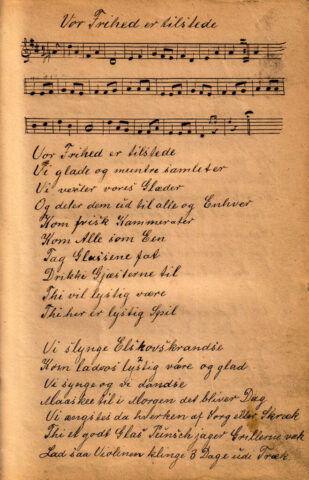 Vor Frihed er tilstede
Vor Frihed er tilstede
Vi glade og muntre samleter
Vi vexler vores Glæder
Og deler dem ud til alle og Enhver
Kom frisk Kammerater
Kom Alle som Een
Tag Glassene fat
Drikke Gjæsterne til
Thi vil lystig være
Thi her er lystig Spil
Vi slynge Elskovskrandse
Kom lad os lystig være og glad
Vi synge og vi dandse
Maaskee til i Morgen det bliver Dag
Vi ængstes da hverken af Sorg eller Skræk
Thi et godt Glas Punsch jager Grillerne væk
Lad saa Violinen klinge 3 Dage ude Træk